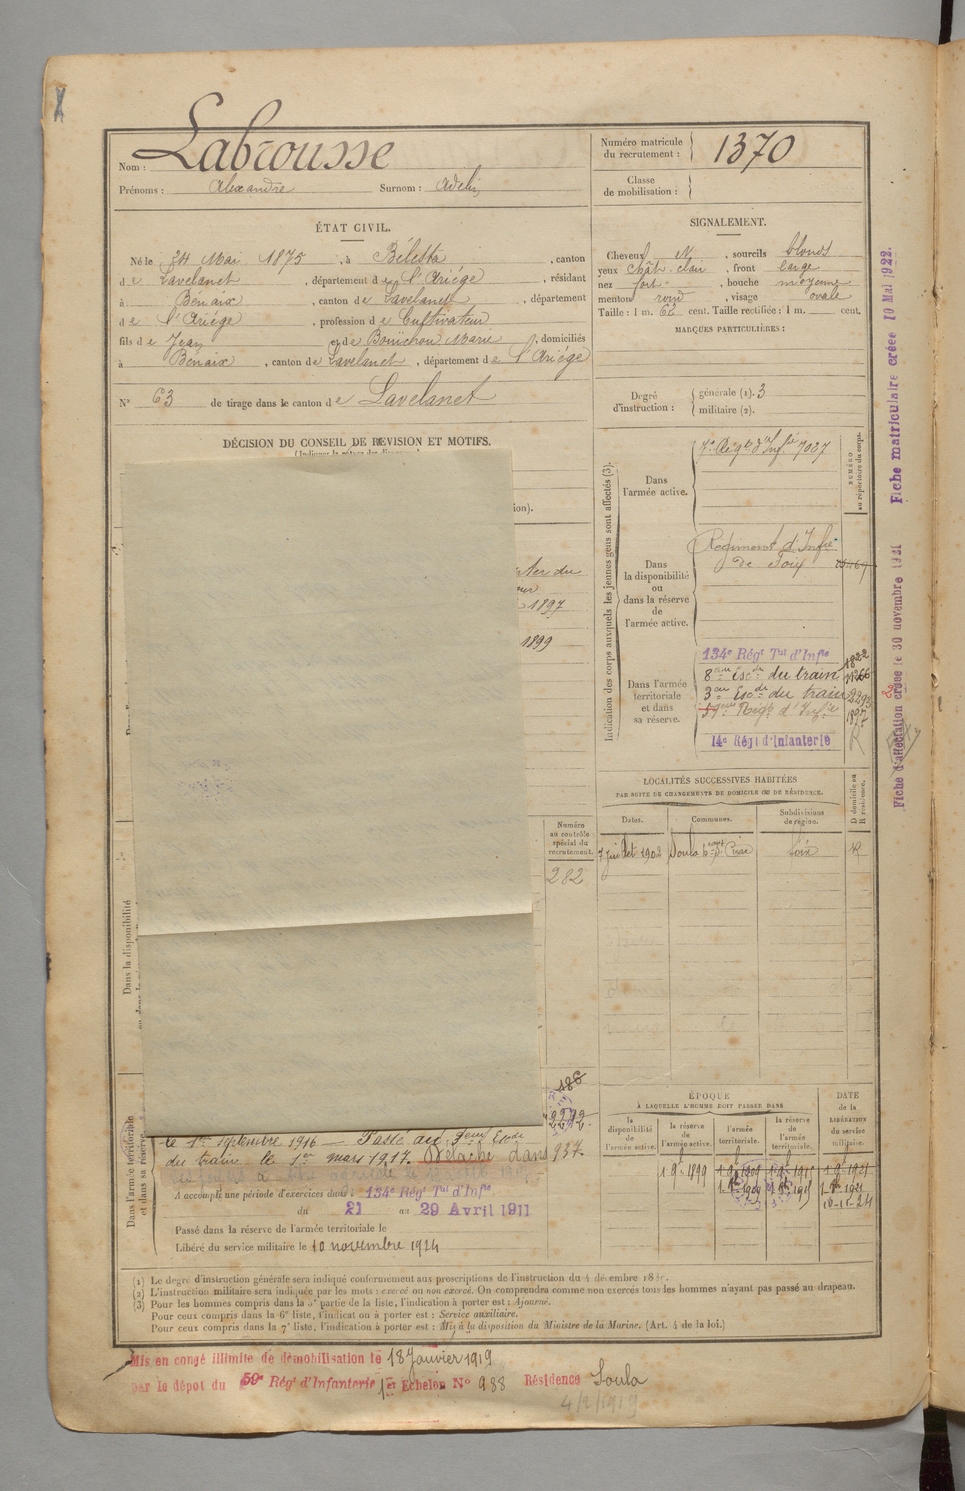 Labrousse
Nom :
Prénoms : Alexandre Surnom : Adelin
Numéro matricule du recrutement : 1370
Classe de mobilisation :
ÉTAT CIVIL.
Né le 24 Mai 1875, à Bélesta, canton
de Lavelanet, département de l'Ariège, résidant
à Bénaix, canton de Lavelanet, département
de l'Ariège, profession de Cultivateur
fils de Jean et de Bouichou Marie, domiciliés
à Bénaix, canton de Lavelanet, département de l'Ariège
N° 63 de tirage dans le canton de Lavelanet
SIGNALEMENT.
Cheveux, sourcils blonds
yeux chât. clair, front large
nez fort, bouche moyenne
menton rond, visage ovale
Taille : 1 m. 62 cent. Taille rectifiée : 1 m. cent.
MARQUES PARTICULIÈRES :
Degré d'instruction : générale (1). 3
militaire (2).
DÉCISION DU CONSEIL DE REVISION ET MOTIFS.
ion).
1897
1899
Indication des corps auxquels les jeunes gens sont affectés (3).
NUMÉRO au répertoire du corps.
Dans l'armée active.
7e Régt d'Infie 7007
Dans la disponibilité ou dans la réserve de l'armée active.
Régiment d'Infie
de Foix
Dans l'armée territoriale et dans sa réserve.
134e Régt Tal d'Infie 1822
8eme Escon du train
3eme Escon du train 2293
59eme Régt d'Infie 1897
14e Régt d'Infanterie
LOCALITÉS SUCCESSIVES HABITÉES
PAR SUITE DE CHANGEMENTS DE DOMICILE OU DE RÉSIDENCE.
Dates. Communes. Subdivisions de région. D domicile ou R résidence.
7 juillet 1902 Soula Foix R
Numéro au contrôle spécial du recrutement.
282
Dans la disponibilité
186
Dans l'armée territoriale et dans sa réserve
le 1er septembre 1916 — Passé au 3eme Escon
du train le 1er mars 1917. Détaché dans 937
A accompli une période d'exercices dans : 134e Régt Tal d'Infie
du 21 au 29 Avril 1911
Passé dans la réserve de l'armée territoriale le
Libéré du service militaire le 10 novembre 1924
ÉPOQUE
À LAQUELLE L'HOMME DOIT PASSER DANS
la disponibilité de l'armée active. la réserve de l'armée active. l'armée territoriale. la réserve de l'armée territoriale. DATE de la LIBÉRATION du service militaire.
1 9e 1899 1 9e 1909 1 9e 1915 1 9e 1921
10-11-24
(1) Le degré d'instruction générale sera indiqué conformément aux prescriptions de l'instruction du 4 décembre
(2) L'instruction militaire sera indiquée par les mots : exercé ou non exercé. On comprendra comme non exercés tous les hommes n'ayant pas passé au drapeau.
(3) Pour les hommes compris dans la 5e partie de la liste, l'indication à porter est : Ajourné.
Pour ceux compris dans la 6e liste, l'indication à porter est : Service auxiliaire.
Pour ceux compris dans la 7e liste, l'indication à porter est : Mis à la disposition du Ministre de la Marine. (Art. 4 de la loi.)
Mis en congé illimité de démobilisation le 18 Janvier 1919
par le dépôt du 59e Régt d'Infanterie 1er Echelon N° 988 Résidence Soula
4/2/1919
Fiche d'affectation créée le 30 novembre 1921 Fiche matriculaire créée 19 Mai 1922.